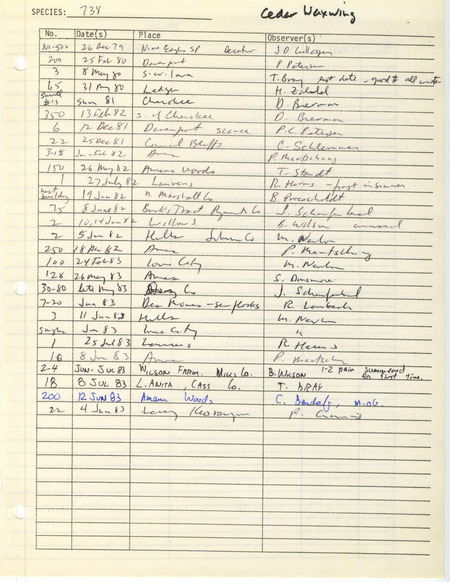 SPECIES: 738 Cedar Waxwing
No. Date(s) Place Observer(s)
26 Dec 79 Nine Eagles SP Decatur
200 25 Feb 80 Davenport P. Petersen
3 8 May 80 S.W. Iowa T. Bray
65 31 Ledges H. Zaletel
Sum 81 Cherokee D. Bierman
350 13 Feb 82 S. of Cherokee D. Bierman
6 12 Dec 81 Davenport scarce P.C. Petersen
22 25 Dec 81 Council Bluffs C. Schlemmer
3-15 Jan-Feb 82 Ames P. Martsching
150 26 May 82 Amana Woods T. Staudt
1 27 July 82 Laurens R. Harms - first in summer
nest building 19 Jun 82 n. Marshall Co B. Proescholdt
75 8 June 82 J. Schaufenbuel
2 10, 14 Jun 82 Willows B. Wilson unusual
2 5 Jun 82 Hills Johnson Co M. Newlon
250 18 82 Ames P. Martsching
100 24 Feb 83 Iowa City M. Newlon
128 26 May 83 Ames S. Dinsmore
30-80 late May 83 Co J. Schaufenbuel
7-20 Jun 83 Des Moines - sev flocks R.
3 11 Jun 83 Hills M. Newlon
singles Jun 83 Iowa City "
1 25 Jul 83 Laurens R Harms
10 8 Jun 83 Ames P. Martsching
2-4 JUN-JUL 83 WILSON FARM, MILLS CO. B. WILSON 1-2 pair summered for first time.
18 8 JUL 83 L. ANITA, CASS CO. T. BRAY
200 12 JUN 83 Amana Woods C. Bendorf, M.OG.
22 4 Jun 83 Lacey Keosauqua